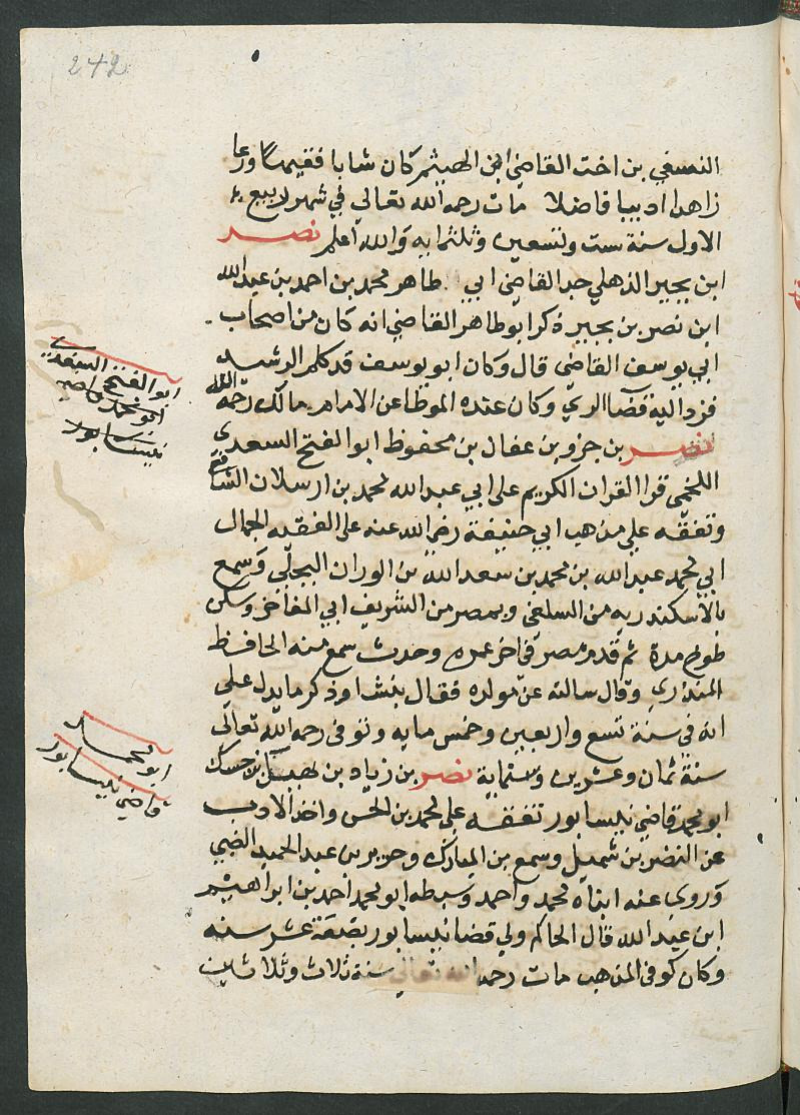 242
النسفي بن اخت القاضي ابي الهيثم كان شابا فقيها ورعا
زاهدا اديبا فاضلا مات رحمه الله تعالي في شهر ربيع
الاول سنة ست وتسعين وثلثمايه والله اعلم نصر
ابن بجير الذهلي جد القاضي ابي طاهر محمد بن احمد بن عبد الله
ابن نصر بن بجير ذكر ابو طاهر القاضي انه كان من اصحاب
ابي يوسف القاضي قال وكان ابو يوسف قد كلم الرشيد
فرد اليه قضا الري وكان عنده الموطا عن الامام مالك رحمه الله
نصر بن جزو بن عفال بن محفوظ ابو الفتح السعدي
اللخمي قرا القران الكريم علي ابي عبد الله محمد بن ارسلان الشافعي
وتفقه علي مذهب ابي حنيفة رضي الله عنه علي الفقيه الجمال
ابي محمد عبد الله بن محمد بن سعد الله بن الوران البجلي وسمع
بالاسكندريه من السلفي وبمصر من الشريف ابي المفاخر وسكن
طوخ مدة ثم قدم مصر في اخر عمره وحدث سمع منه الحافظ
المنذري وقال سالته عن مولده فقال بنشا وذكر ما يدل علي
انه في سنة تسع واربعين وخمس مايه وتوفي رحمه الله تعالي
سنة ثمان وعشرين وستماية نصر بن زياد بن نهيك بن حسك
ابو محمد قاضي نيسابور تفقه علي محمد بن الحسن واخذ الادب
عن النضر بن شميل وسمع بن المبارك وجرير بن عبد الحميد الضبي
وروي عنه ابناه محمد واحمد وسبطه ابو محمد احمد بن ابراهيم
ابن عبد الله قال الحاكم ولي قضا نيسابور بضعة عشر سنه
وكان كوفي المذهب مات رحمه الله تعالي سنة ثلاث وثلاثين
ابو الفتح السعدي
ابو محمد قاضي
نيسابور
ابو محمد
قاضي نيسابور